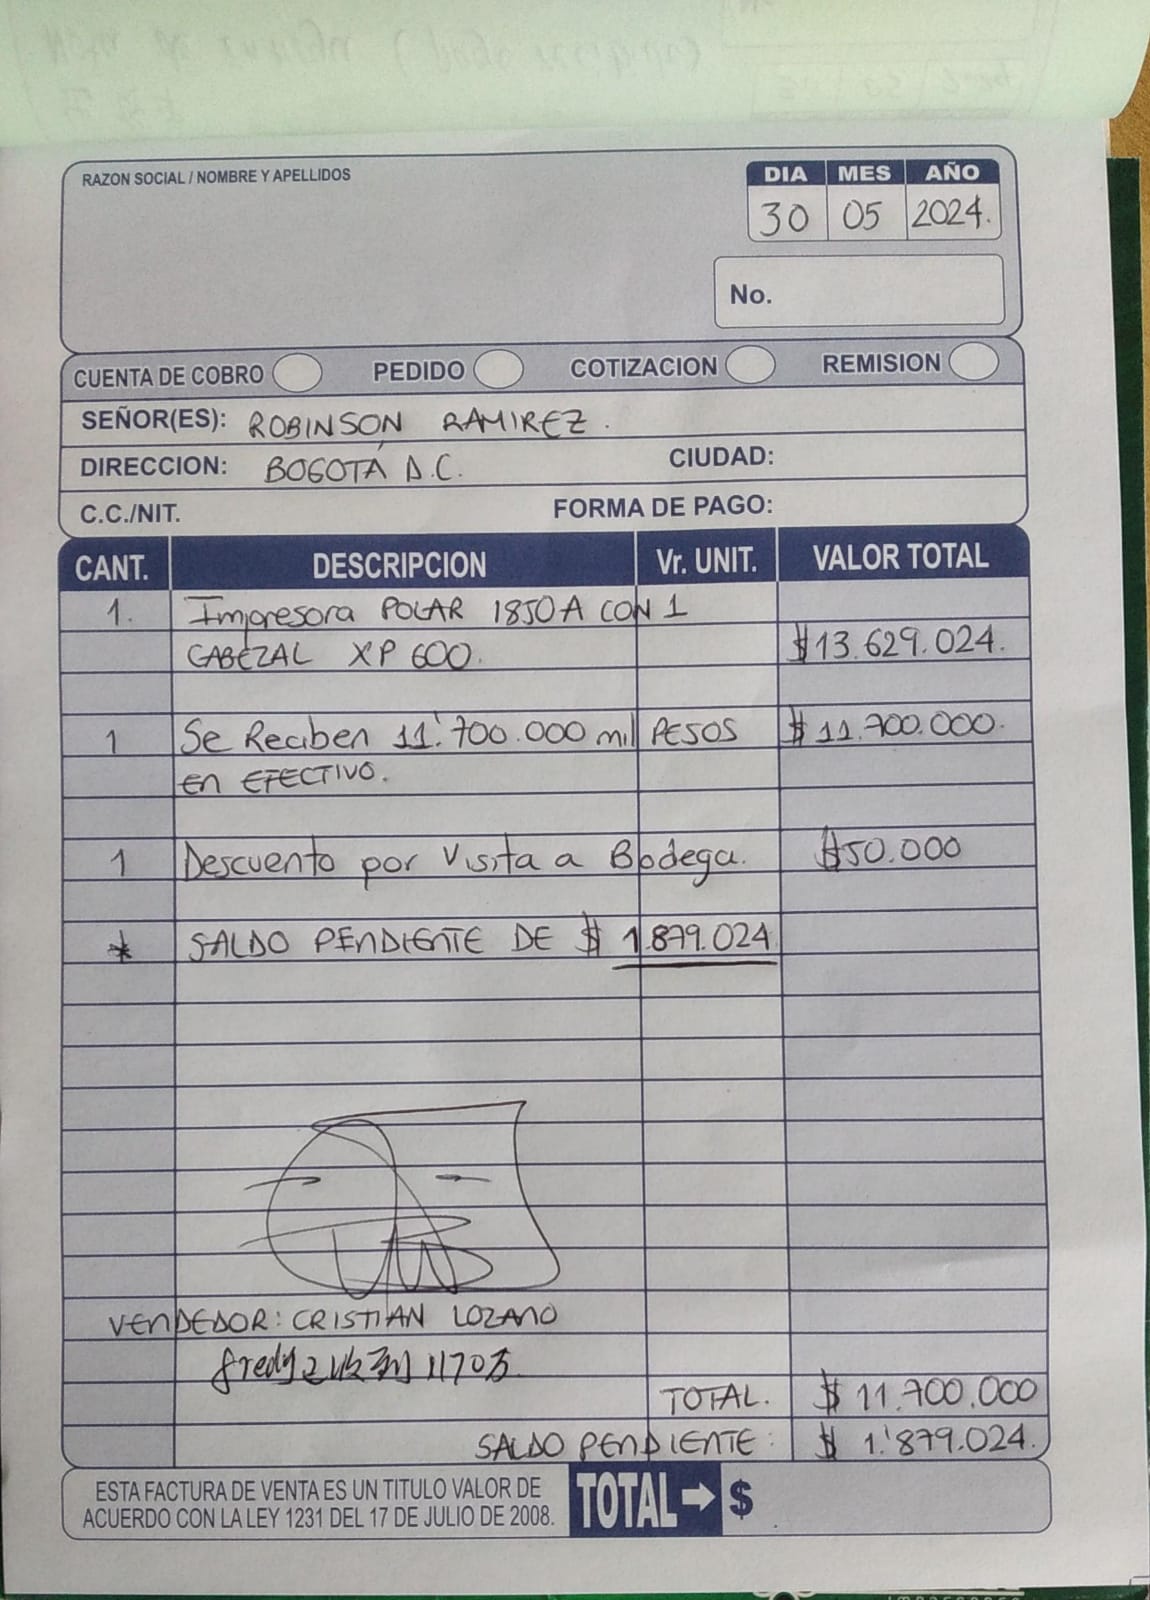 RAZON SOCIAL / NOMBRE Y APELLIDOS
DIA MES AÑO
30 05 2024.
No.
CUENTA DE COBRO PEDIDO COTIZACION REMISION
SEÑOR(ES): ROBINSON RAMIREZ.
DIRECCION: BOGOTÁ D.C. CIUDAD:
C.C./NIT. FORMA DE PAGO:
CANT. DESCRIPCION Vr. UNIT. VALOR TOTAL
1. Impresora POLAR 1850A CON 1
CABEZAL XP 600. $13.629.024.
1 Se Reciben 11'.700.000 mil PESOS $ 11.700.000.
en EFECTIVO.
1 Descuento por Visita a Bodega. $50.000
* SALDO PENDIENTE DE $ 1.879.024
VENDEDOR: CRISTIAN LOZANO
fredy已收到1170万
TOTAL. $ 11.700.000
SALDO PENDIENTE: $ 1.'879.024.
ESTA FACTURA DE VENTA ES UN TITULO VALOR DE
ACUERDO CON LA LEY 1231 DEL 17 DE JULIO DE 2008.
TOTAL → $